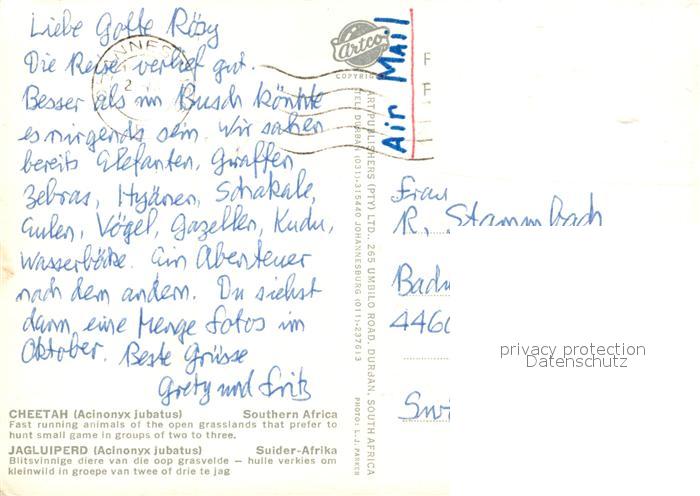 Liebe Gotte Rösy
Die Reise verlief gut.
Besser als im Busch könnte
es nirgends sein. Wir sahen
bereits Elefanten, Giraffen
Zebras, Hyänen, Schakale,
Eulen, Vögel, Gazellen, Kudu,
Wasserböcke. Ein Abenteuer
nach dem andern. Du siehst
dann eine Menge Fotos im
Oktober. Beste Grüsse
Grety und Fritz
CHEETAH (Acinonyx jubatus) Southern Africa
Fast running animals of the open grasslands that prefer to
hunt small game in groups of two to three.
JAGLUIPERD (Acinonyx jubatus) Suider-Afrika
Blitsvinnige diere van die oop grasvelde — hulle verkies om
kleinwild in groepe van twee of drie te jag
Artco
COPYRIGHT
ART PUBLISHERS (PTY) LTD., 265 UMBILO ROAD, DURBAN, SOUTH AFRICA
TEL. DURBAN (031)-315440 JOHANNESBURG (011)-237613
PHOTO: L.J. PARKER
Air MAIL
Frau
R. Stammbach
446
privacy protection
Datenschutz